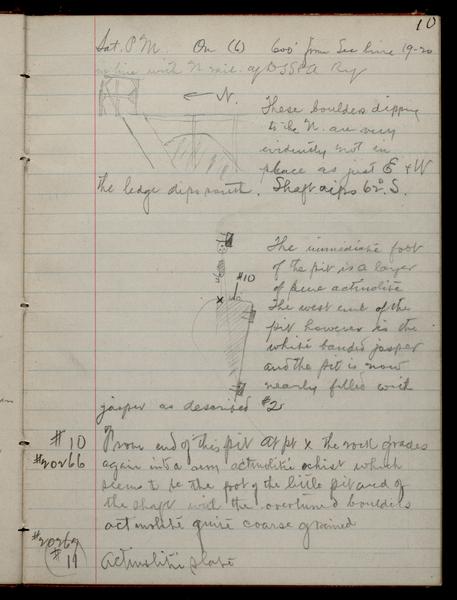 10
Sat. P.M. On (6) 600' from Sec line 19-20
on line with N rail of DSS&A Ry
← N.
These boulders dipping
to the N. are very
evidently not in
place as just E + W
the ledge dips south. Shaft dips 62° S.
The immediate foot
of the pit is a layer
#10
of pure actinolite
x
The west end of the
pit however is the
white banded jasper
and the pit is now
nearly filled with
jasper as described #2
#10 end of this pit at pt x the rock grades
#20266 again into a actinolite schist which
seems to be the foot of the little pit and of
the shaft with the overturned boulders
actinolite quite coarse grained
#20267
#11 Actinolite slate